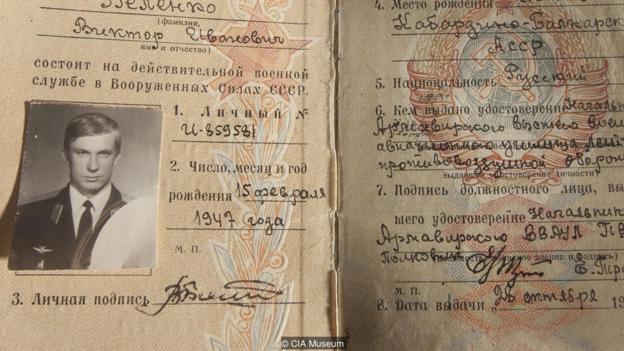 Беленко
(фамилия,
Виктор Иванович
имя и отчество)
состоит на действительной военной
службе в Вооруженных Силах СССР.
1. Личный №
И-859581
2. Число, месяц и год
рождения 15 февраля
1947 года
М. П.
3. Личная подпись
4. Место рождения
Кабардино-Балкарск
АССР
5. Национальность Русский
6. Кем выдано удостоверение Начальник
Армавирского высшего военн
авиационного училища лётч
противовоздушной оборон
выдавшего удостоверение личности)
7. Подпись должностного лица, вы
шего удостоверение Начальник
Армавирского ВВАУЛ ПВ
Полковник
М. П.
8. Дата выдачи „26 октября 19
© CIA Museum